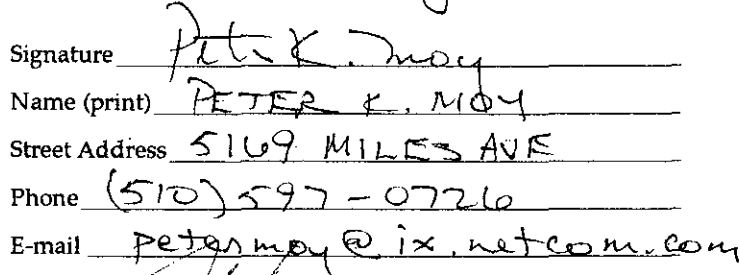 Signature Peter K. Moy
Name (print) PETER K. MOY
Street Address 5169 MILES AVE
Phone (510) 597-0726
E-mail petermoy@ix.netcom.com